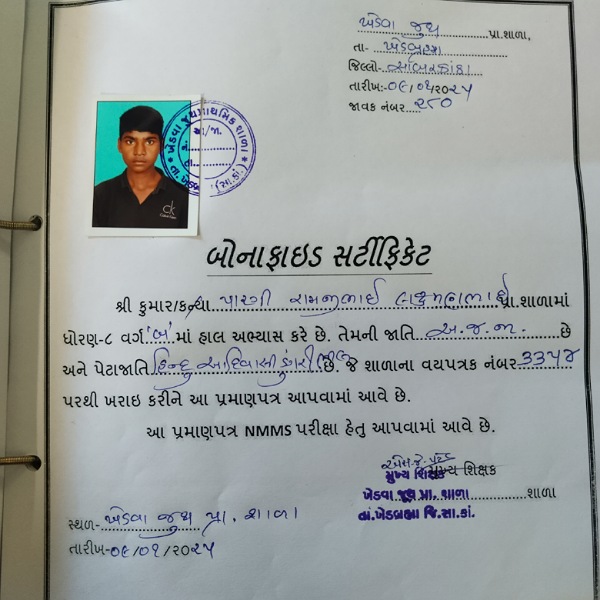 ખેડવા જુથ પ્રા.શાળા,
તા- ખેડબ્રહ્મા
જિલ્લો- સાબરકાંઠા
તારીખ:-૦૯/૦૧/૨૦૨૫
જાવક નંબર...૨૮૦
ખેડવા જુથ પ્રાથમિક શાળા
જા./જા.
તા.
તા. ખેડબ્રહ્મા (સા.કાં.)
ck
Calvin Klein
બોનાફાઇડ સર્ટીફિકેટ
શ્રી કુમાર/કન્યા પારગી રામજીભાઈ લક્ષ્મણભાઈ પ્રા.શાળામાં
ધોરણ-૮ વર્ગ 'બ' માં હાલ અભ્યાસ કરે છે. તેમની જાતિ અ.જ.જા. છે
અને પેટાજાતિ હિન્દુ આદિવાસી ડુંગરી ભીલ છે. જે શાળાના વયપત્રક નંબર ૩૩૫૪
પરથી ખરાઇ કરીને આ પ્રમાણપત્ર આપવામાં આવે છે.
આ પ્રમાણપત્ર NMMS પરીક્ષા હેતુ આપવામાં આવે છે.
મુખ્ય શિક્ષક
મુખ્ય શિક્ષક
ખેડવા જુથ પ્રા. શાળા શાળા
તાં.ખેડબ્રહ્મા જિ.સા.કાં.
સ્થળ- ખેડવા જુથ પ્રા. શાળા
તારીખ:-૦૯/૦૧/૨૦૨૫